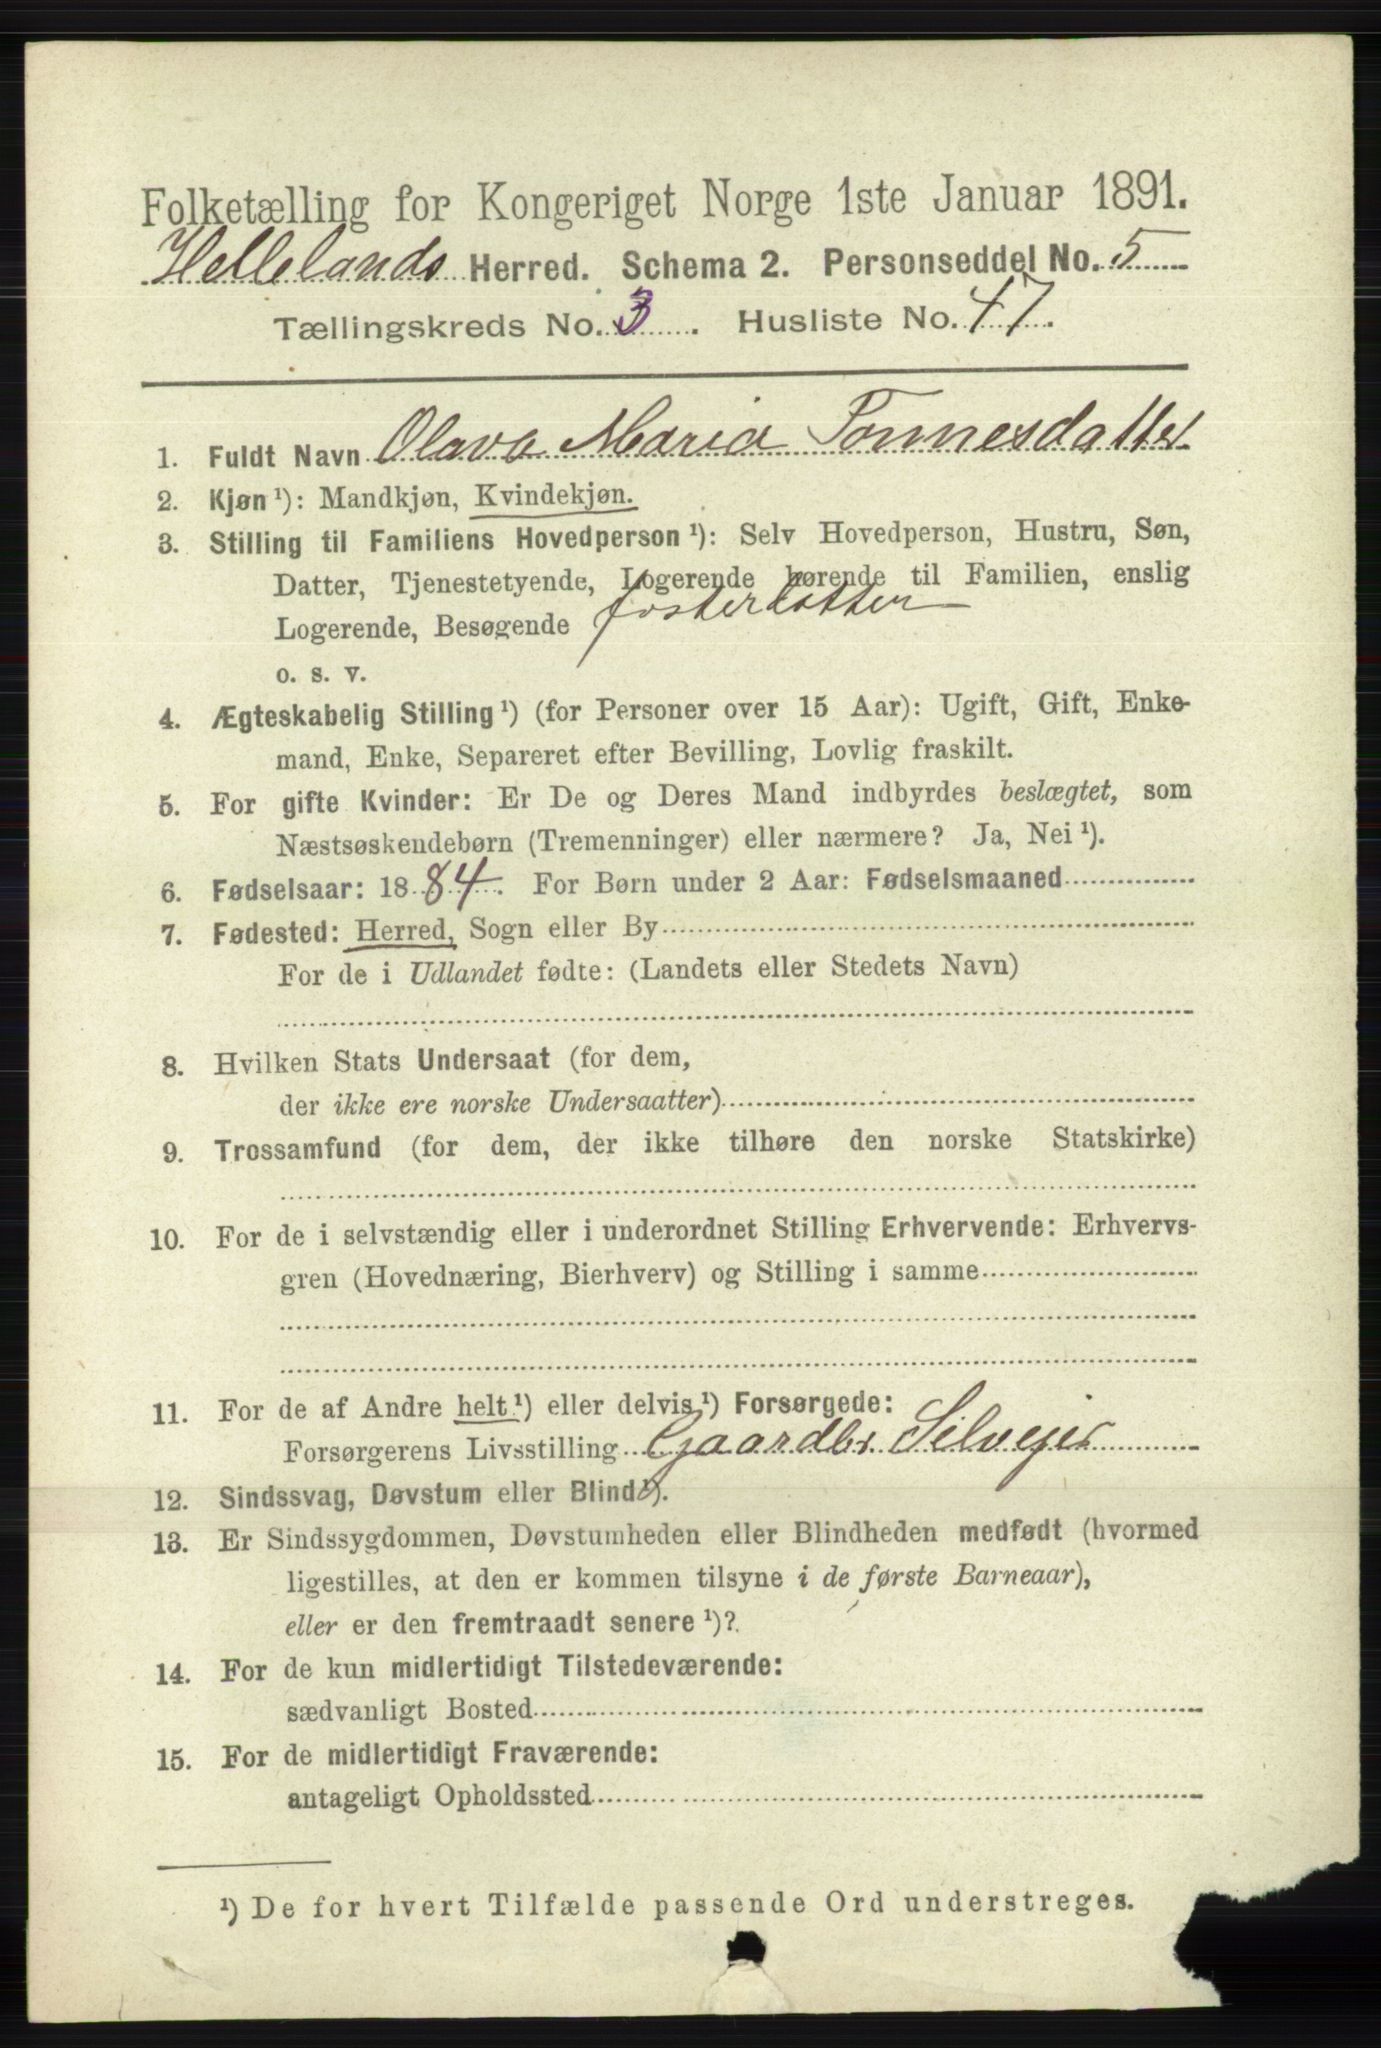 Folketælling for Kongeriget Norge 1ste Januar 1891.
Hellelands Herred. Schema 2. Personseddel No. 5
Tællingskreds No. 3. Husliste No. 47.
1. Fuldt Navn Olava Maria Tønnesdatter
2. Kjøn ¹): Mandkjøn, Kvindekjøn.
3. Stilling til Familiens Hovedperson ¹): Selv Hovedperson, Hustru, Søn,
Datter, Tjenestetyende, Logerende hørende til Familien, enslig
Logerende, Besøgende fosterdatter
o. s. v.
4. Ægteskabelig Stilling ¹) (for Personer over 15 Aar): Ugift, Gift, Enke-
mand, Enke, Separeret efter Bevilling, Lovlig fraskilt.
5. For gifte Kvinder: Er De og Deres Mand indbyrdes beslægtet, som
Næstsøskendebørn (Tremenninger) eller nærmere? Ja, Nei ¹).
6. Fødselsaar: 1884. For Børn under 2 Aar: Fødselsmaaned
7. Fødested: Herred, Sogn eller By
For de i Udlandet fødte: (Landets eller Stedets Navn)
8. Hvilken Stats Undersaat (for dem,
der ikke ere norske Undersaatter)
9. Trossamfund (for dem, der ikke tilhøre den norske Statskirke)
10. For de i selvstændig eller i underordnet Stilling Erhvervende: Erhvervs-
gren (Hovednæring, Bierhverv) og Stilling i samme
11. For de af Andre helt ¹) eller delvis ¹) Forsørgede:
Forsørgerens Livsstilling Gaardbr. Selvejer
12. Sindssvag, Døvstum eller Blind ¹).
13. Er Sindssygdommen, Døvstumheden eller Blindheden medfødt (hvormed
ligestilles, at den er kommen tilsyne i de første Barneaar),
eller er den fremtraadt senere ¹)?
14. For de kun midlertidigt Tilstedeværende:
sædvanligt Bosted
15. For de midlertidigt Fraværende:
antageligt Opholdssted
¹) De for hvert Tilfælde passende Ord understreges.